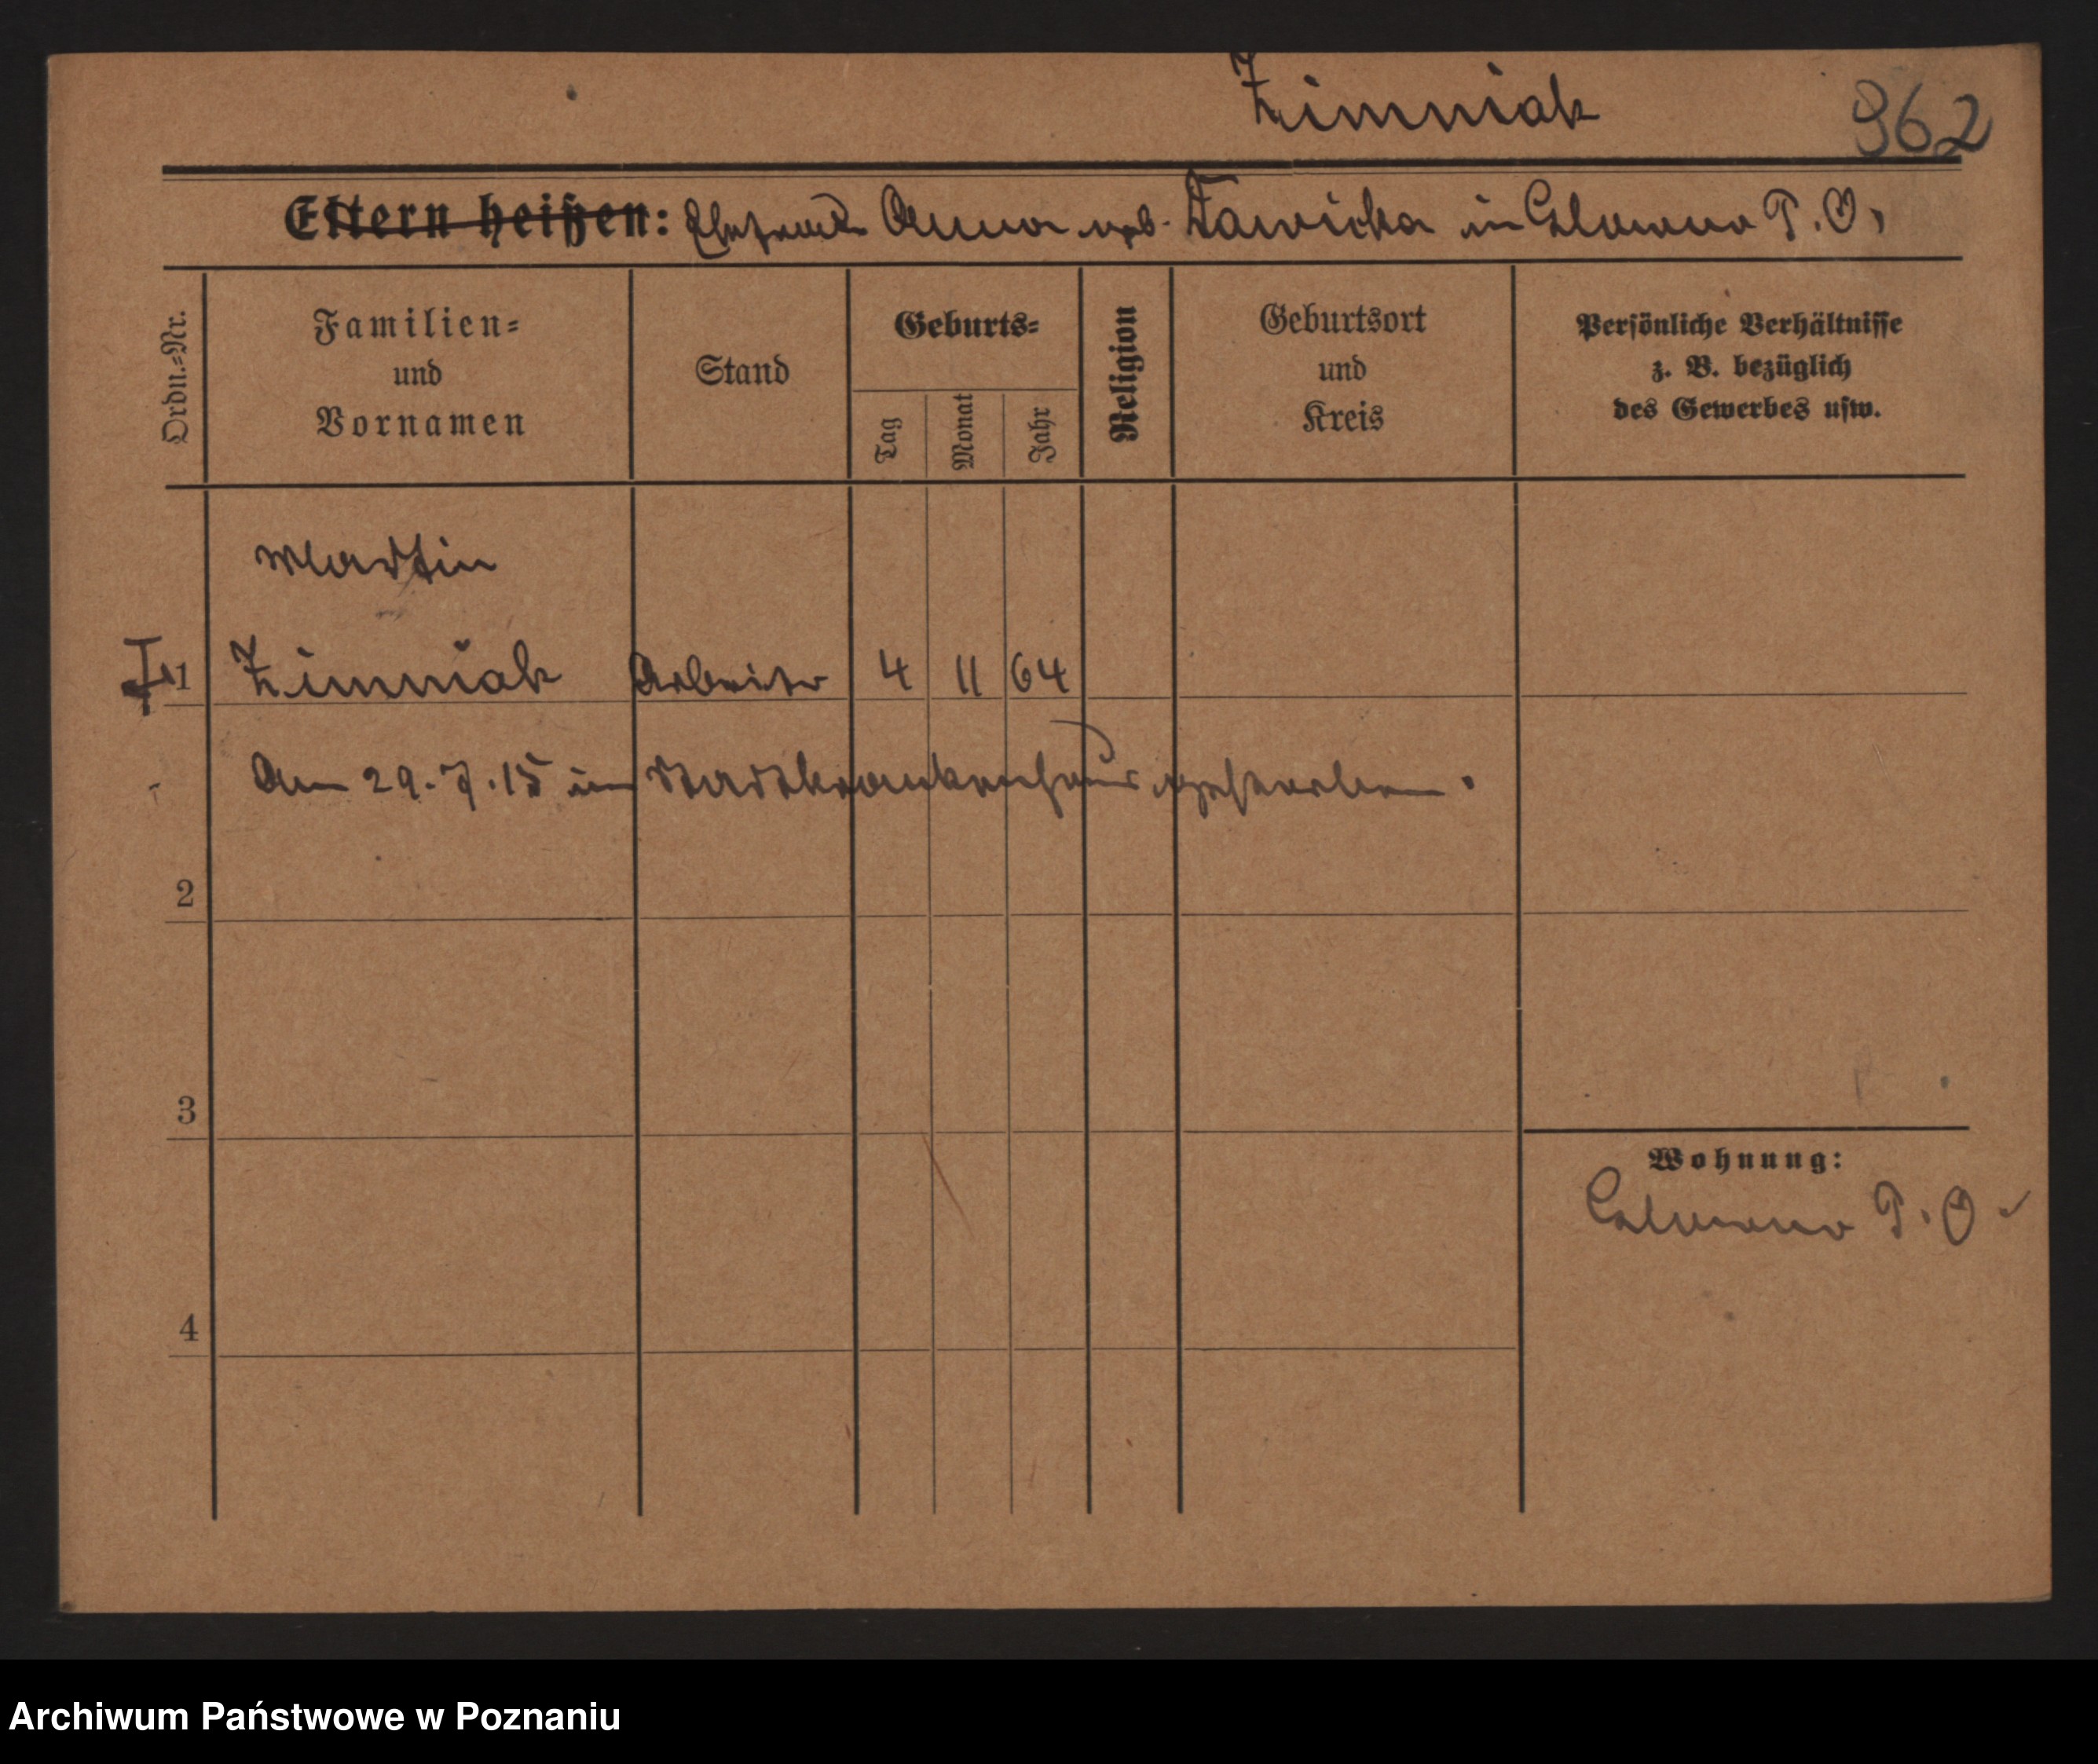 Zimniak
962
Eltern heißen: Ehefrau Anna geb. Zawicka in P. O.
Ordn.=Nr.
Familien=
und
Vornamen
Stand
Geburts=
Tag
Monat
Jahr
Religion
Geburtsort
und
Kreis
Persönliche Verhältnisse
z. B. bezüglich
des Gewerbes usw.
Martin
1 Zimniak Arbeiter 4 11 64
Am 29.7.15 im Stadtkrankenhaus gestorben.
2
3
Wohnung:
P. O
4
Archiwum Państwowe w Poznaniu